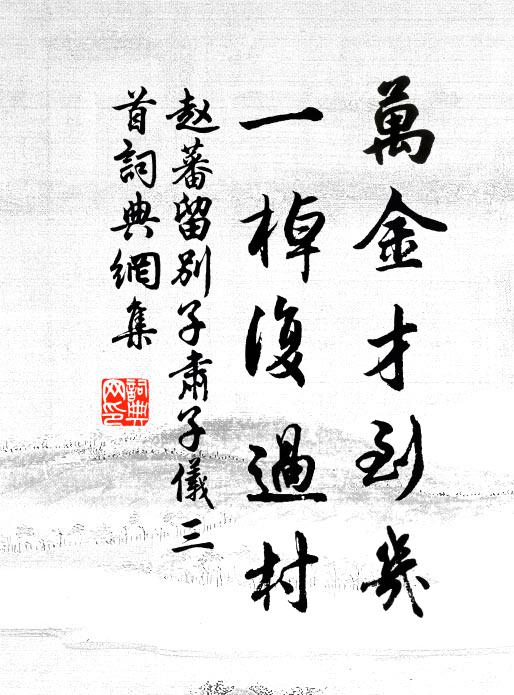 萬金才到幾
一棹復過村
赵蕃留别子肅子儀三
首詞典網集
詞典网印